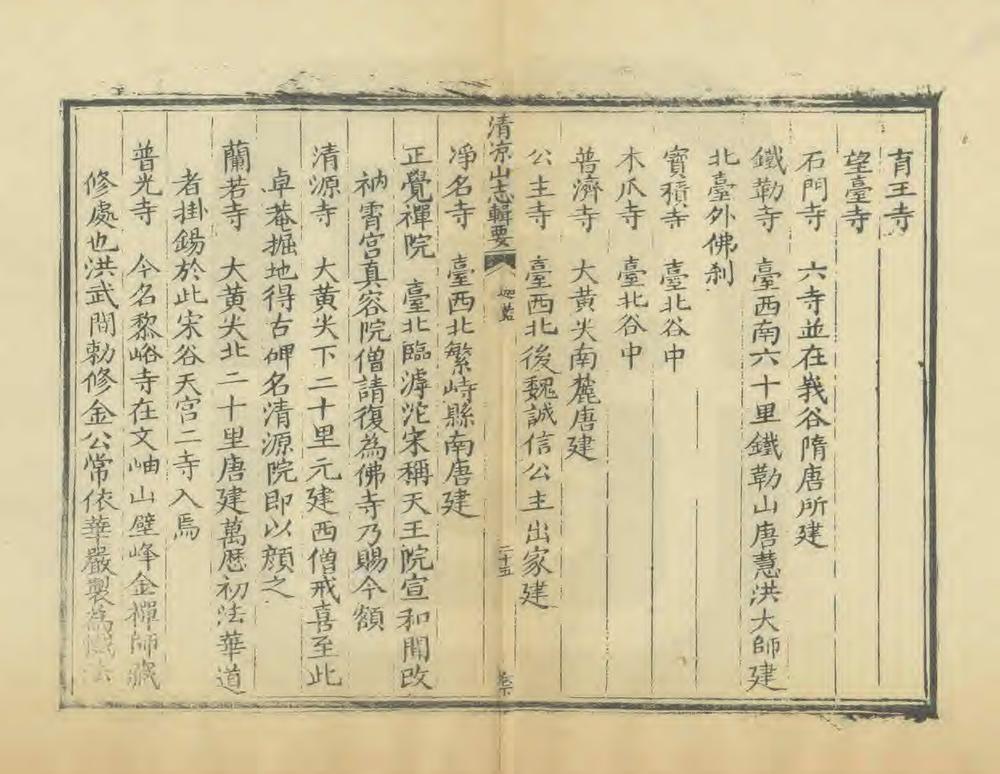 育王寺
望臺寺
石門寺 六寺並在峩谷隋唐所建
鐵勒寺 臺西南六十里鐵勒山唐慧洪大師建
北臺外佛剎
寶積寺 臺北谷中
木瓜寺 臺北谷中
普濟寺 大黃尖南麓唐建
公主寺 臺西北後魏誠信公主出家建
清凉山志輯要 伽藍 二十五
淨名寺 臺西北繁峙縣南唐建
正覺禪院 臺北臨滹沱宋稱天王院宣和間改
衲霄宫真容院僧請復為佛寺乃賜今額
清源寺 大黃尖下二十里元建西僧戒喜至此
卓菴掘地得古碑名清源院即以顏之
蘭若寺 大黃尖北二十里唐建萬歷初法華道
者掛錫於此宋谷天宫二寺入焉
普光寺 今名黎峪寺在文岫山壁峰金禪師藏
修處也洪武間勅修金公常依華嚴製為